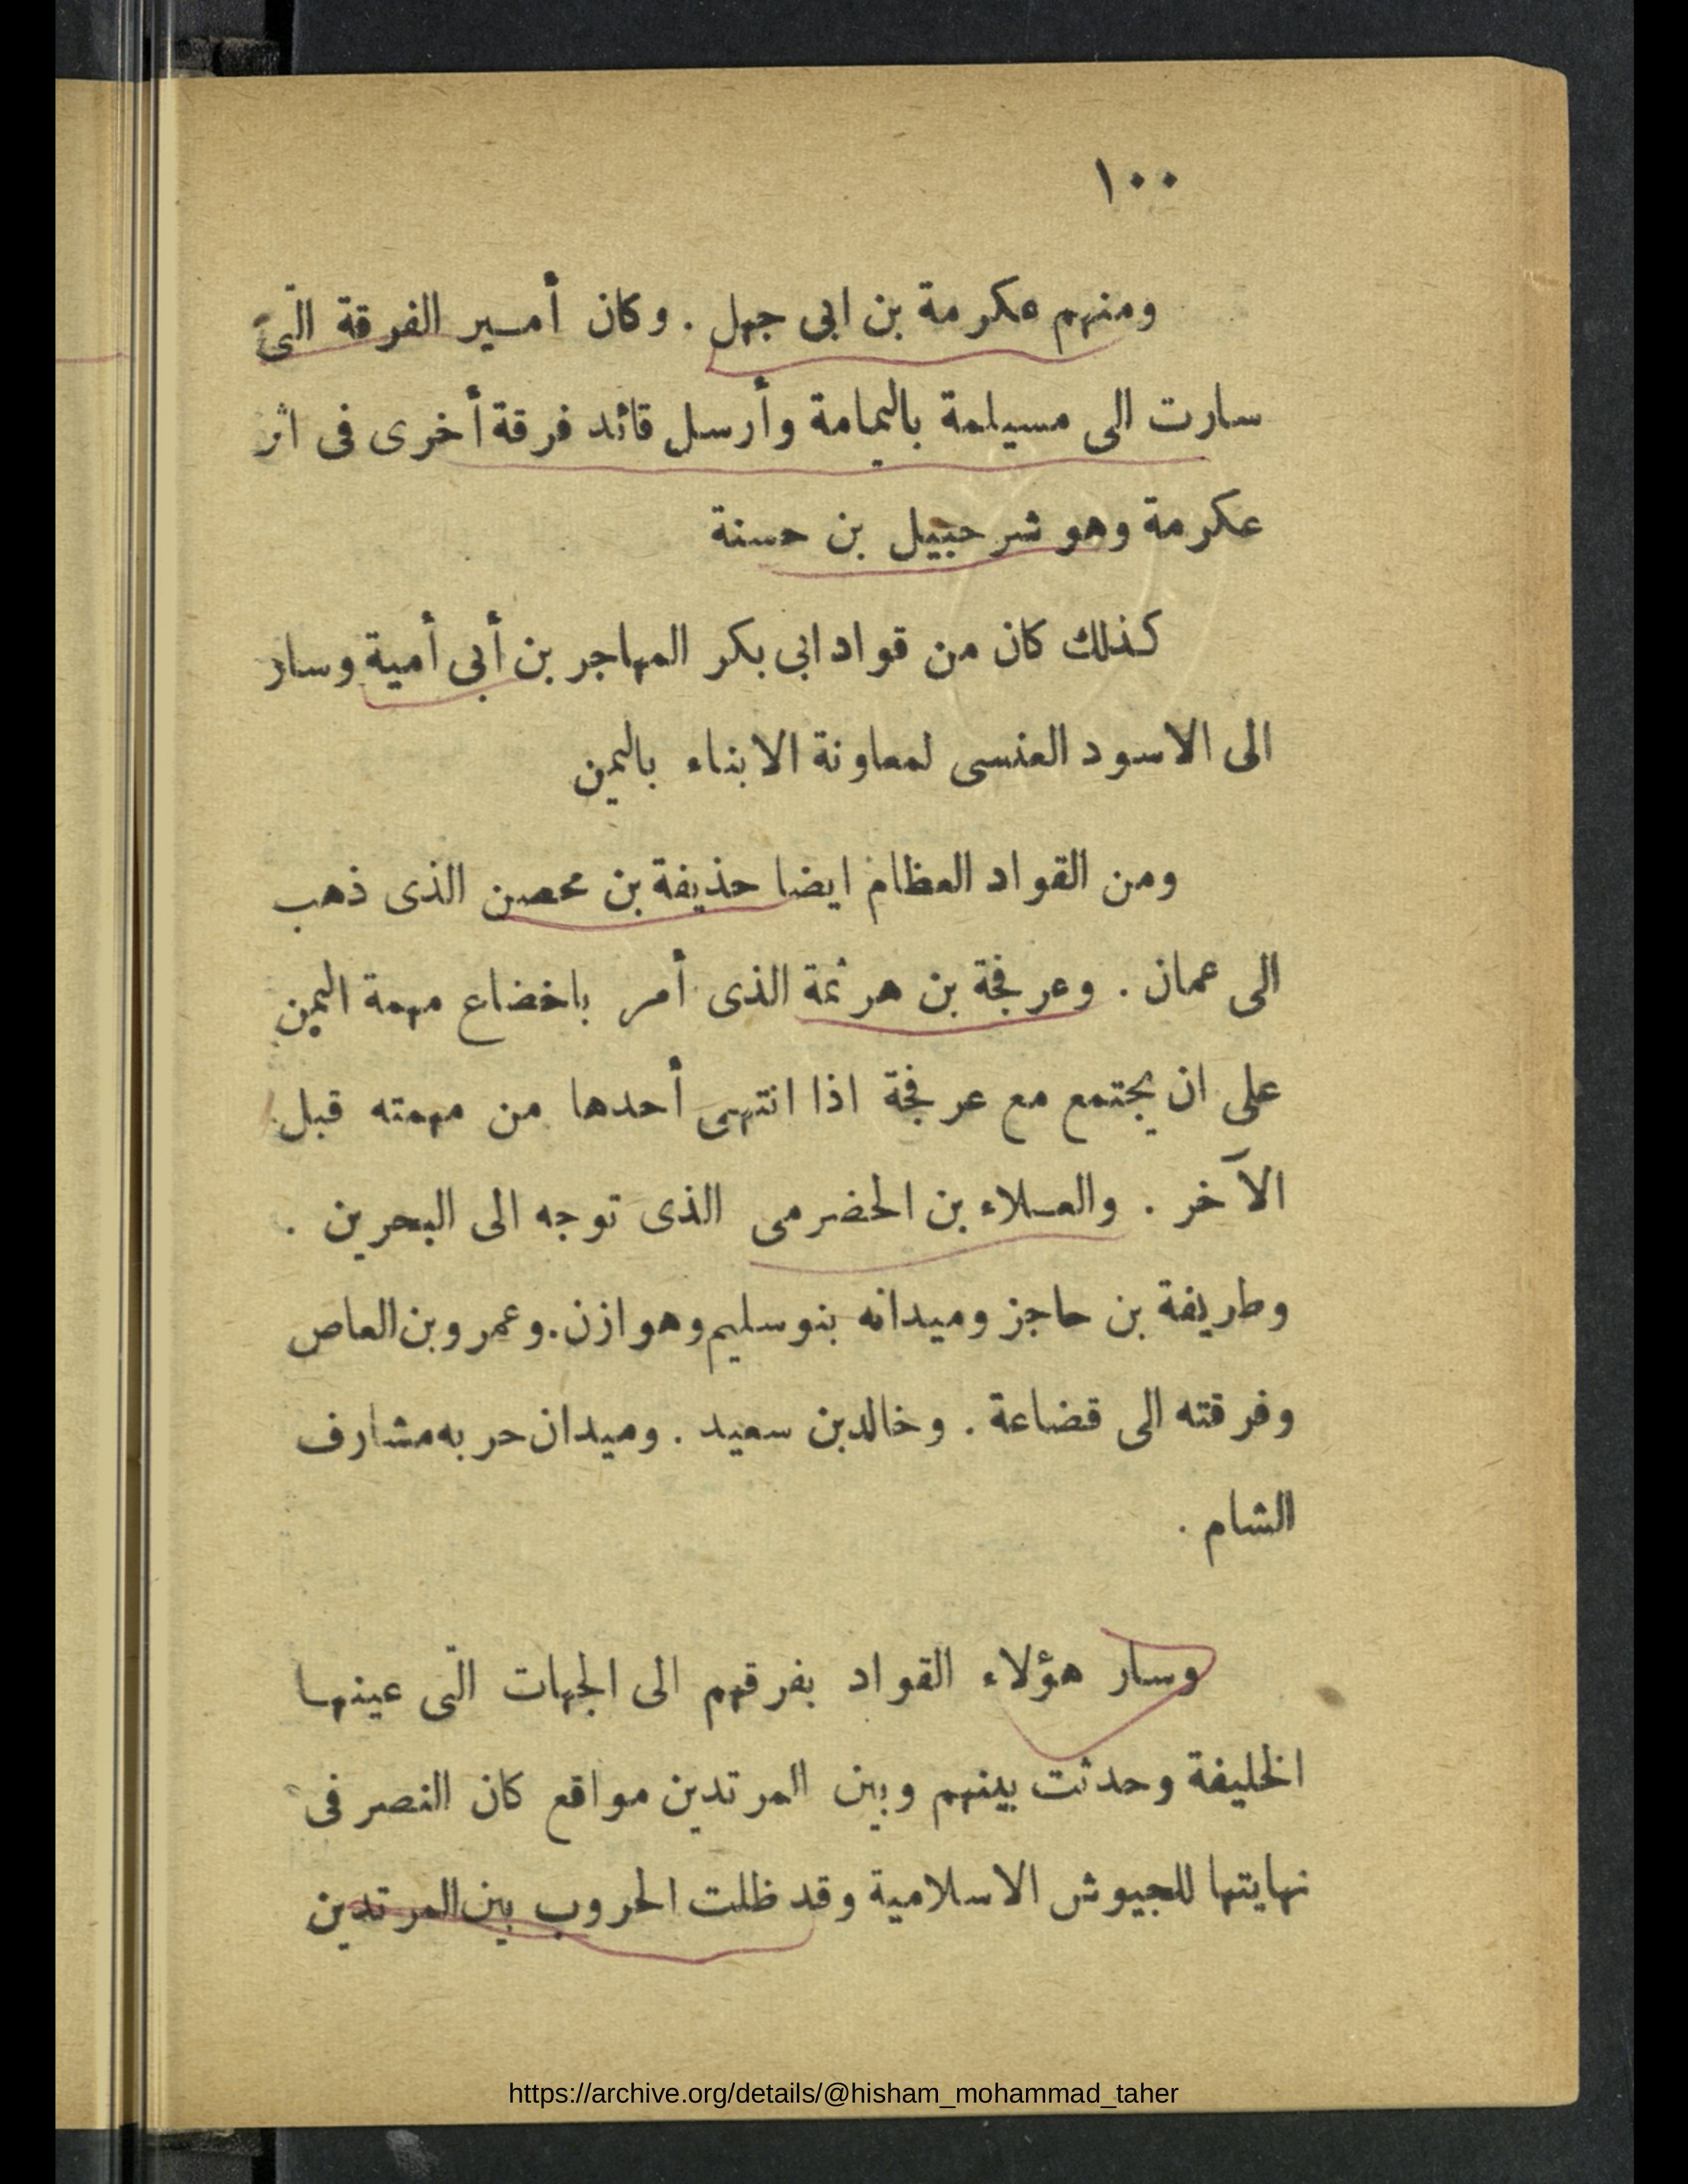 ١٠٠
ومنهم عكرمة بن ابى جهل . وكان أمير الفرقة التى
سارت الى مسيلمة باليمامة وأرسل قائد فرقة أخرى فى اثر
عكرمة وهو شرحبيل بن حسنة
كذلك كان من قواد ابى بكر المهاجر بن أبى أمية وسار
الى الاسود العنسى لمعاونة الابناء باليمن
ومن القواد العظام ايضا حذيفة بن محصن الذى ذهب
الى عمان . وعرفجة بن هرثمة الذى أمر باخضاع مهمة اليمن
على ان يجتمع مع عرفجة اذا انتهى أحدها من مهمته قبل
الآخر . والعلاء بن الحضرمى الذى توجه الى البحرين .
وطريفة بن حاجز وميدانه بنو سليم وهوازن . وعمرو بن العاص
وفرقته الى قضاعة . وخالد بن سعيد . وميدان حربه مشارف
الشام .
وسار هؤلاء القواد بفرقهم الى الجهات التى عينها
الخليفة وحدثت بينهم وبين المرتدين مواقع كان النصر فى
نهايتها للجيوش الاسلامية وقد ظلت الحروب بين المرتدين
https://archive.org/details/@hisham_mohammad_taher